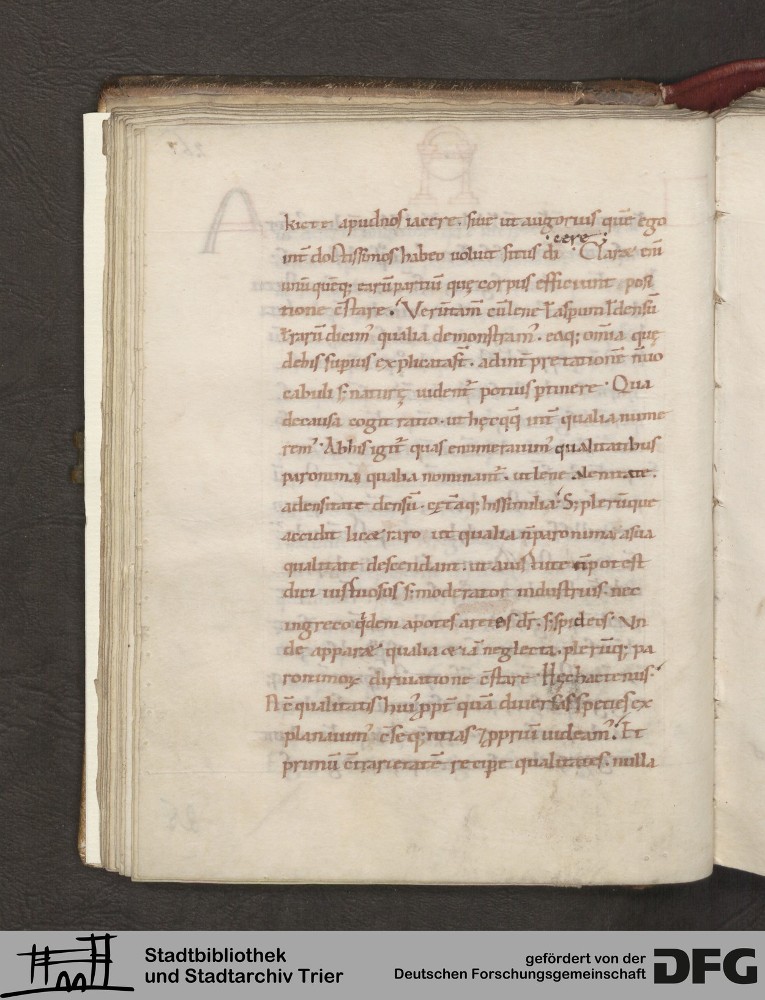 kiete apudnos iacere. siue ut augorius quē ego
int̄ doctissimos habeo uoluit situs di
·cere;
Claræ eni̅
unu̅ quēq; earu̅ partiu̅ quę corpus efficiunt posi
tione c̄stare. Verūtam̄ cū lene ł aspum ł densū
ł raru̅ dicim᷒ qualia demonstram᷒. eaq; om̄ia quę
de his supius explicata st̄. ad int̄pretationē
cabuli s; naturę uident᷒ potius ptinere. Qua
de causa cogit ratio. ut hęc qq̨ int̄ qualia nume
rem᷒. Ab his igit᷒ quas enumerauim᷒ qualitatibus
paronima qualia nominant᷒. ut lene a lenitate.
a densitate densū. c̨etaq; his similia. S; plerūque
accidit licæ raro ut qualia n̄ paronima a sua
qualitate descendant. ut a uirtute n̄ potest
dici uirtuosus s; moderator industrius. nec
in greco qdem apotes aretes dr̄. s; spideos. Vn
de apparæ qualia æiā neglecta. plerūq; pa
ronimoꝝ diriuatione c̄stare. Hęc hactenus.
Nc̄ qualitatis hui᷒ ppt̄ quā diuersas species ex
planauim᷒ c̄seq;ntias ⁊ ppriu̅ uideam᷒. Et
primū c̄trarietatē recipit qualitates. nulla
Stadtbibliothek
und Stadtarchiv Trier
gefördert von der
Deutschen Forschungsgemeinschaft
DFG